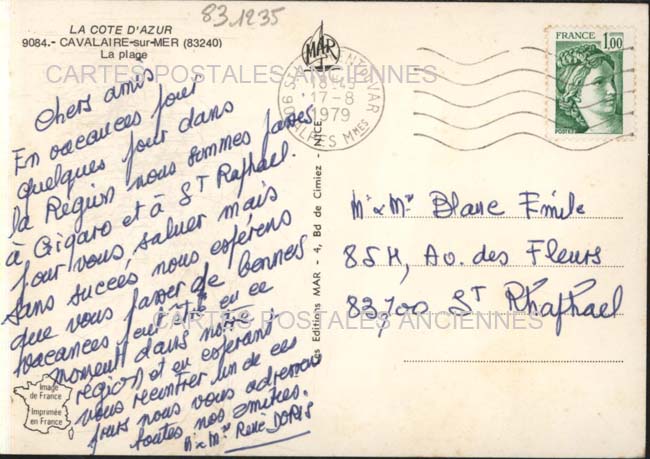 83.1235
LA COTE D'AZUR
9084.- CAVALAIRE-sur-MER (83240)
La plage
MAR
1,00
FRANCE
POSTES
18-45
17-8
1979
ALPES Mmes
CARTES POSTALES ANCIENNES
Chers amis
En vacances pour
quelques jour dans
la Région nous sommes passés
à Gigaro et à ST Raphael.
pour vous saluer mais
sans succés nous espérons
que vous passer de bonnes
vacances peut être en ce
moment dans notre
région et en espérant
vous recontrer un de ces
jours nous vous adressons
toutes nos amitiés.
Mr & Mme René
Les Editions MAR - 4, Bd de Cimiez - NICE
Mr & Mme Blanc Emile
85H, Av. des Fleurs
83,700 ST Rhaphael
CARTES POSTALES ANCIENNES
Image
de France
Imprimée
en France